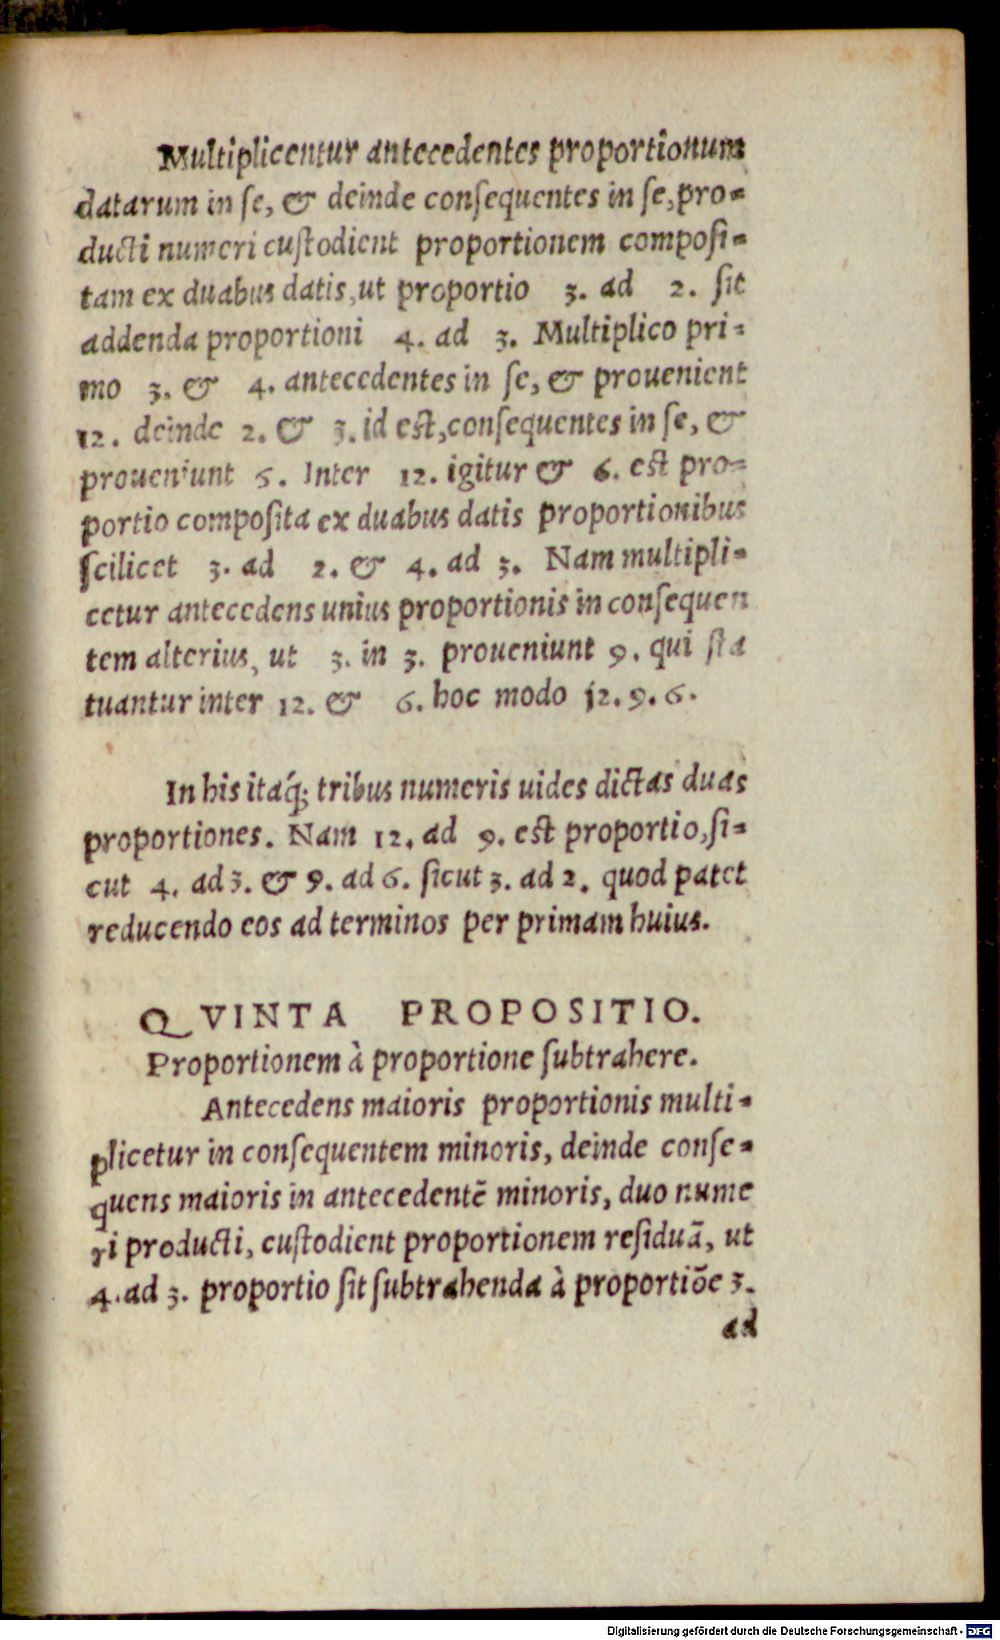 Multiplicentur antecedentes proportionum
datarum in ſe, & deinde conſequentes in ſe, pro=
ducti numeri cuſtodient proportionem compoſi=
tam ex duabus datis, ut proportio 3. ad 2. ſit
addenda proportioni 4. ad 3. Multiplico pri=
mo 3. & 4. antecedentes in ſe, & prouenient
12. deinde 2. & 3. id eſt, conſequentes in ſe, &
proueniunt 6. Inter 12. igitur & 6. eſt pro=
portio compoſita ex duabus datis proportionibus
ſcilicet 3. ad 2. & 4. ad 3. Nam multipli=
cetur antecedens unius proportionis in conſequen
tem alterius, ut 3. in 3. proueniunt 9. qui ſta
tuantur inter 12. & 6. hoc modo 12. 9. 6.
In his itaq́; tribus numeris uides dictas duas
proportiones. Nam 12. ad 9. eſt proportio, ſi=
cut 4. ad 3. & 9. ad 6. ſicut 3. ad 2. quod patet
reducendo eos ad terminos per primam huius.
QVINTA PROPOSITIO.
Proportionem à proportione ſubtrahere.
Antecedens maioris proportionis multi=
plicetur in conſequentem minoris, deinde conſe=
quens maioris in antecedentē minoris, duo nume
ri producti, cuſtodient proportionem reſiduā, ut
4. ad 3. proportio ſit ſubtrahenda à proportiōe 3.
ad
Digitalisierung gefördert durch die Deutsche Forschungsgemeinschaft - DFG